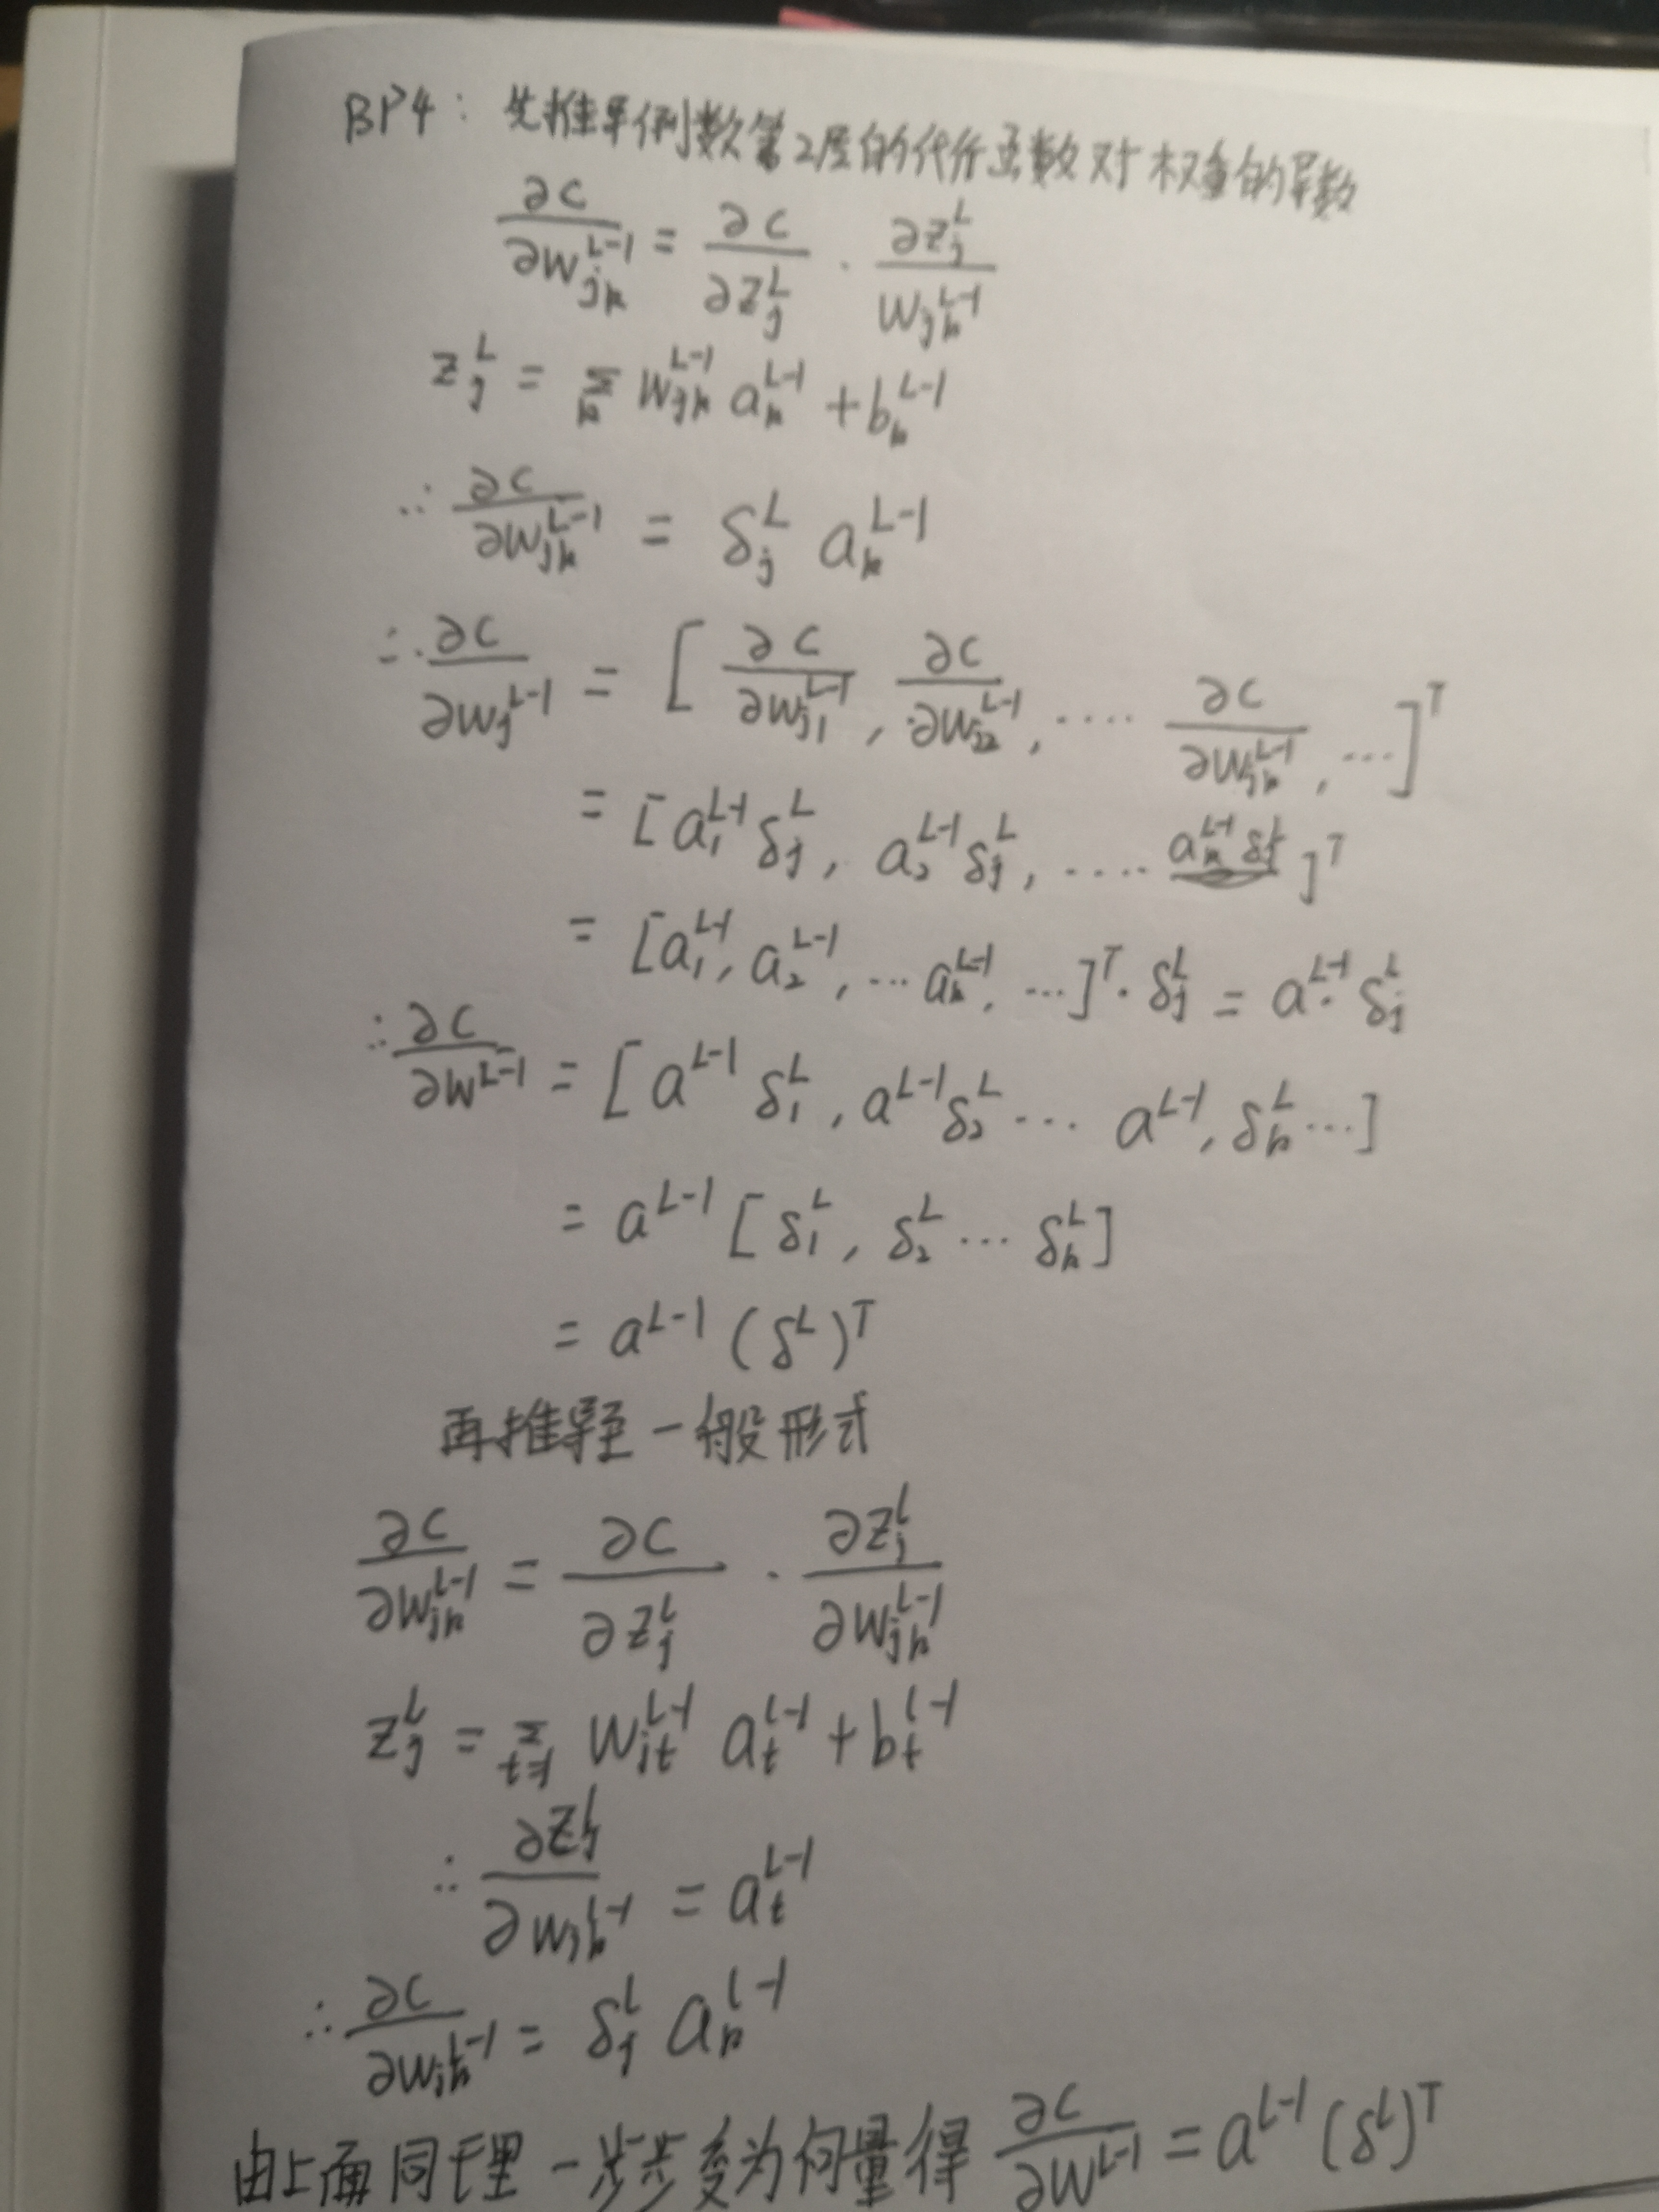 BP4: 先推导倒数第2层的代价函数对权重的导数
∂C/∂w_{jk}^{L-1} = ∂C/∂z_j^L · ∂z_j^L/w_{jk}^{L-1}
z_j^L = Σ_k w_{jk}^{L-1} a_k^{L-1} + b_k^{L-1}
∴ ∂C/∂w_{jk}^{L-1} = δ_j^L a_k^{L-1}
∴ ∂C/∂w_j^{L-1} = [∂C/∂w_{j1}^{L-1}, ∂C/∂w_{j2}^{L-1}, ···· ∂C/∂w_{jk}^{L-1}, ···]^T
= [a_1^{L-1} δ_j^L, a_2^{L-1} δ_j^L, ···· a_k^{L-1} δ_j^L]^T
= [a_1^{L-1}, a_2^{L-1}, ··· a_k^{L-1}, ···]^T · δ_j^L = a^{L-1} · δ_j^L
∴ ∂C/∂w^{L-1} = [a^{L-1} δ_1^L, a^{L-1} δ_2^L ··· a^{L-1}, δ_k^L ···]
= a^{L-1} [δ_1^L, δ_2^L ··· δ_k^L]
= a^{L-1} (δ^L)^T
再推导至一般形式
∂C/∂w_{jk}^{l-1} = ∂C/∂z_j^l · ∂z_j^l/∂w_{jk}^{l-1}
z_j^l = Σ_{t=1} w_{jt}^{l-1} a_t^{l-1} + b_t^{l-1}
∴ ∂z_j^l/∂w_{jk}^{l-1} = a_t^{l-1}
∴ ∂C/∂w_{jk}^{l-1} = δ_j^l a_k^{l-1}
由上面同理一步步变为向量得 ∂C/∂w^{l-1} = a^{l-1} (δ^l)^T